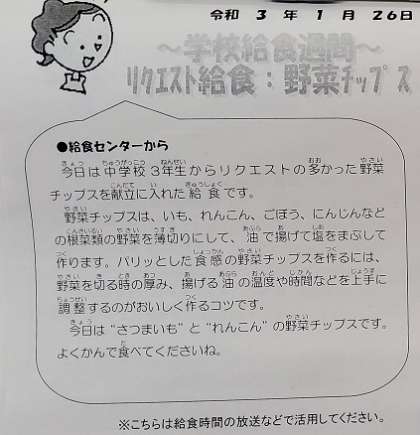 令和 3 年 1 月 26日
～学校給食週間～
リクエスト給食：野菜チップス
●給食センターから
今日は中学校3年生からリクエストの多かった野菜
チップスを献立に入れた給食です。
野菜チップスは、いも、れんこん、ごぼう、にんじんなど
の根菜類の野菜を薄切りにして、油で揚げて塩をまぶして
作ります。パリッとした食感の野菜チップスを作るには、
野菜を切る時の厚み、揚げる油の温度や時間などを上手に
調整するのがおいしく作るコツです。
今日は“さつまいも”と“れんこん”の野菜チップスです。
よくかんで食べてくださいね。
※こちらは給食時間の放送などで活用してください。